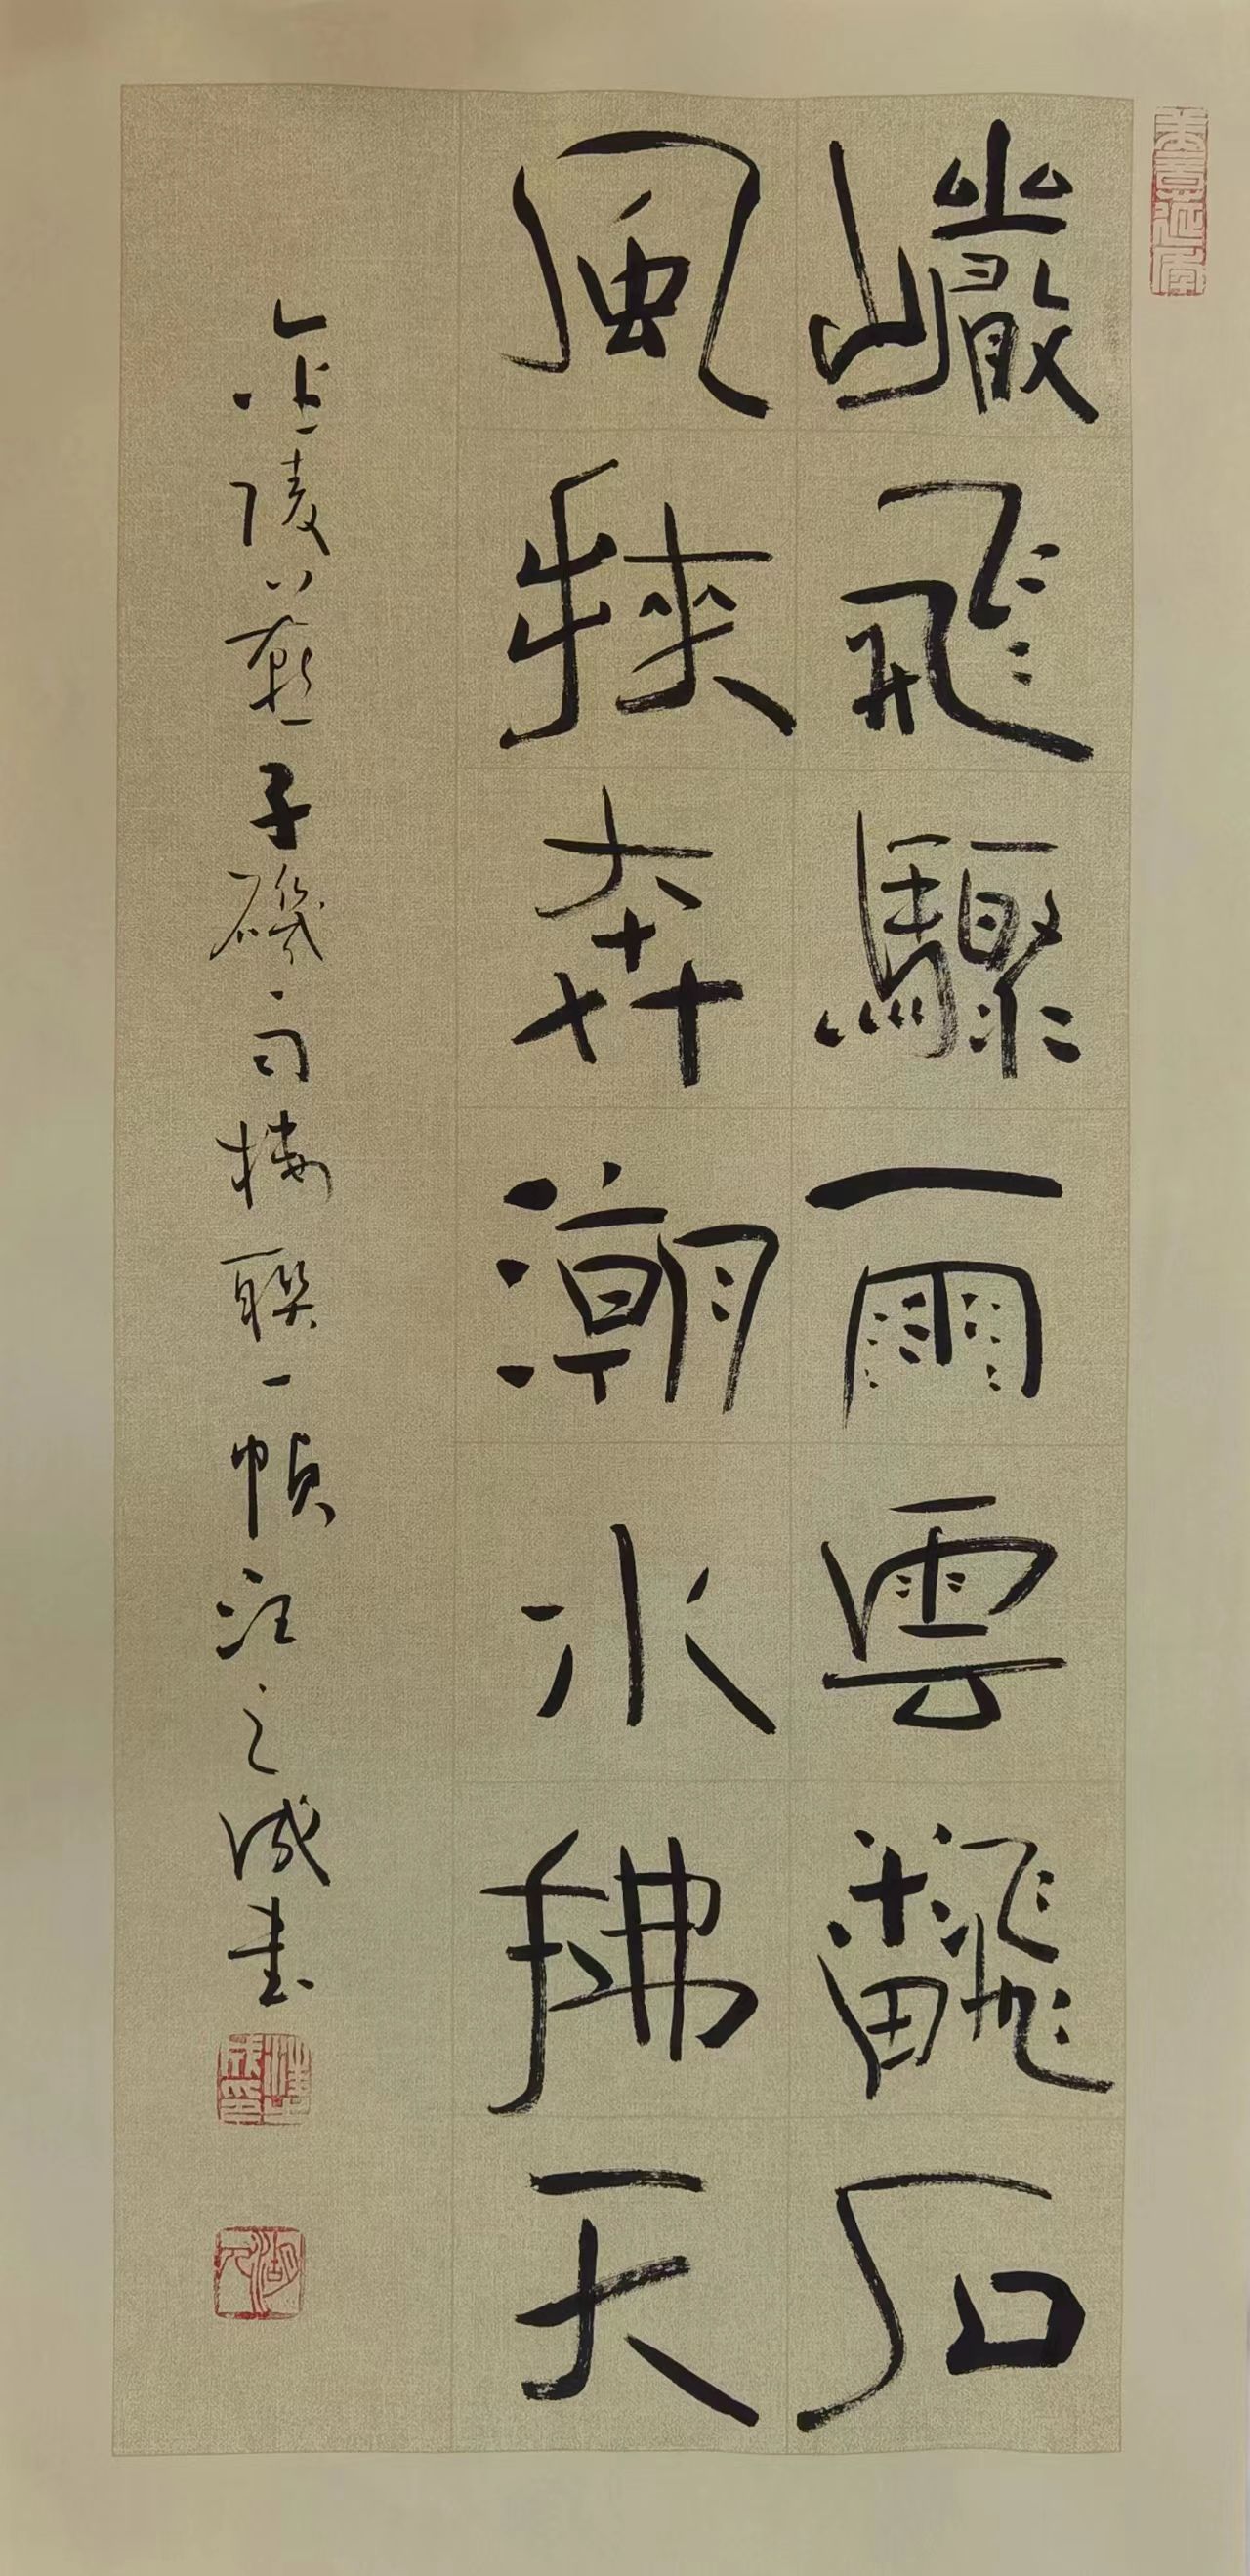 巗飛驟雨雲飜石
風挾奔潮水拂天
金陵燕子磯樓聯一幀汪之誠書